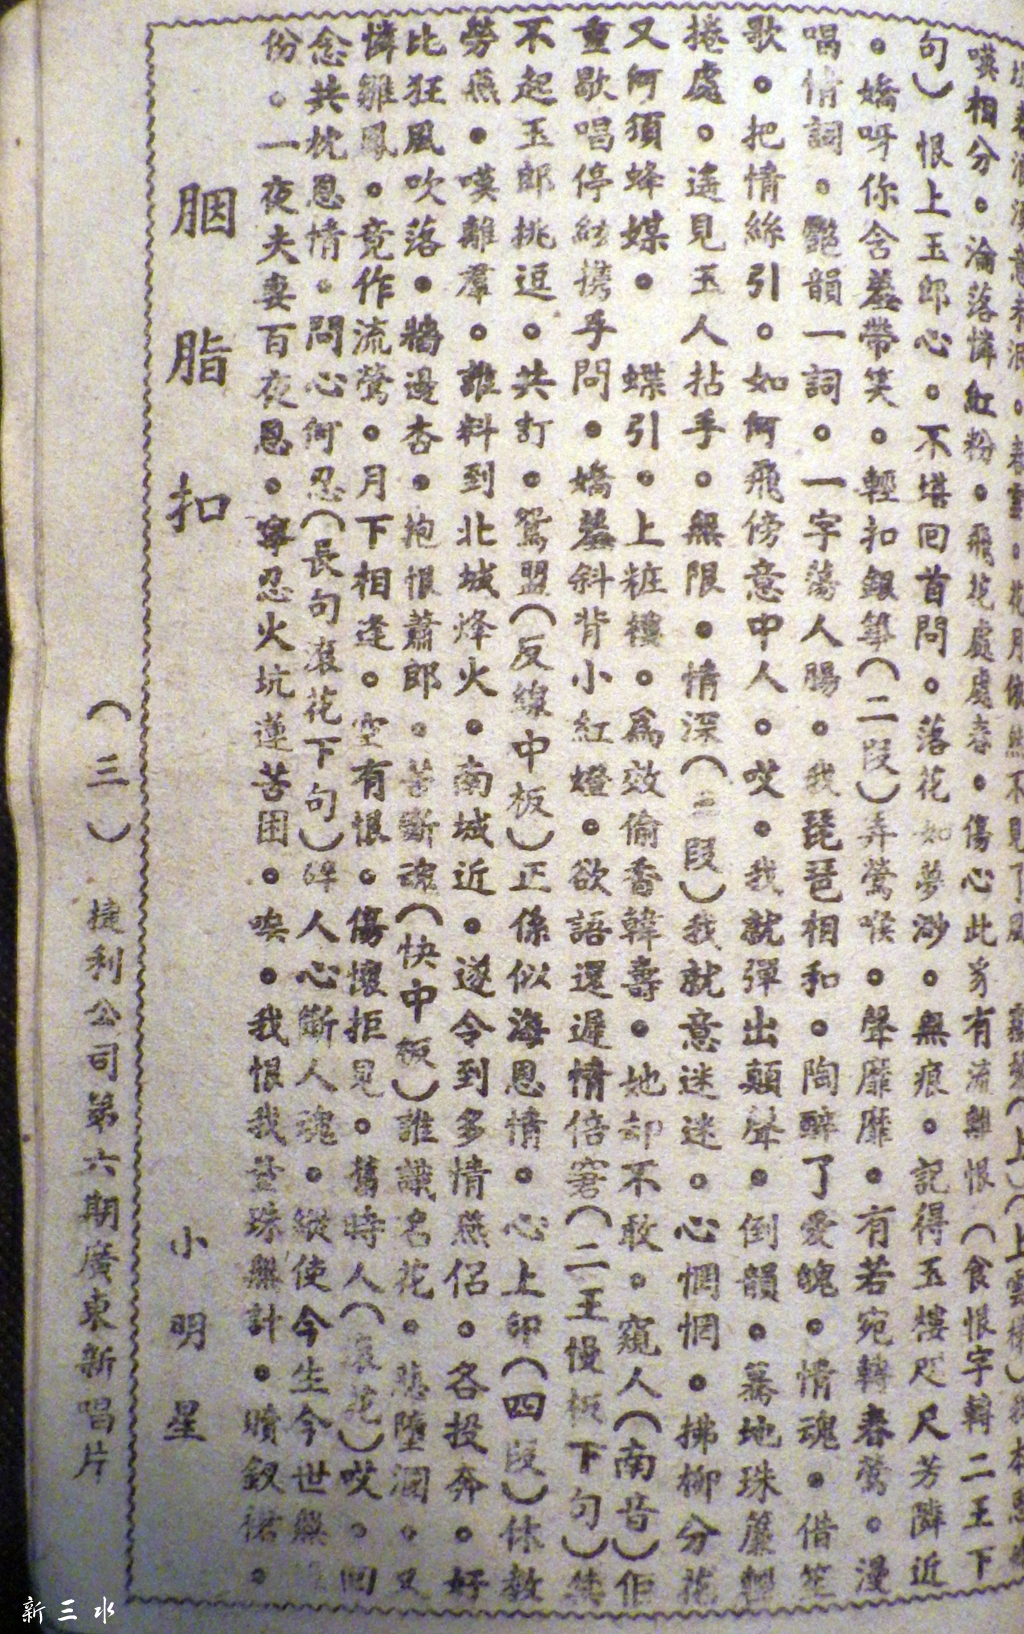 嘆相分。淪落憐紅粉。飛花處處春。傷心此身有流離恨（食恨字轉二王下
句）恨上玉郎心。不堪回首問。落花如夢渺。無痕。記得玉樓咫尺芳隣近
。嬌呀你含羞帶笑。輕扣銀箏（二段）弄鶯喉。聲靡靡。有若宛轉春鶯。漫
唱情詞。艷韻一詞。一字蕩人腸。我琵琶相和。陶醉了愛魄。情魂。借笙
歌。把情絲引。如何飛傍意中人。哎。我就彈出顛聲。倒韻。驀地珠簾輕
捲處。遙見玉人拈手。無限。情深（三段）我就意迷迷。心惘惘。拂柳分花
又何須蜂媒。蝶引。上粧樓。爲效偷香韓壽。她却不敢。窺人（南音）佢
重歇唱停絃携手問。嬌羞斜背小紅燈。欲語還遲情倍窘（二王慢板下句）
不起玉郎挑逗。共訂。鴛盟（反線中板）正係似海恩情。心上印（四段）休教
勞燕。嘆離羣。誰料到北城烽火。南城近。遂令到多情燕侶。各投奔。好
比狂風吹落。牆邊杏。抱恨蕭郎。苦斷魂（快中板）誰識名花。悲墮溷。又
憐雛鳳。竟作流鶯。月下相逢。空有恨。傷懷拒見。舊時人（滾花）哎。回
念共枕恩情。問心何忍（長句滾花下句）碎人心斷人魂。縱使今生今世無
份。一夜夫妻百夜恩。寧忍火坑遭苦困。唉。我恨我量珠無計。贖釵裙。
胭脂扣
小明星
（三）捷利公司第六期廣東新唱片
新三水